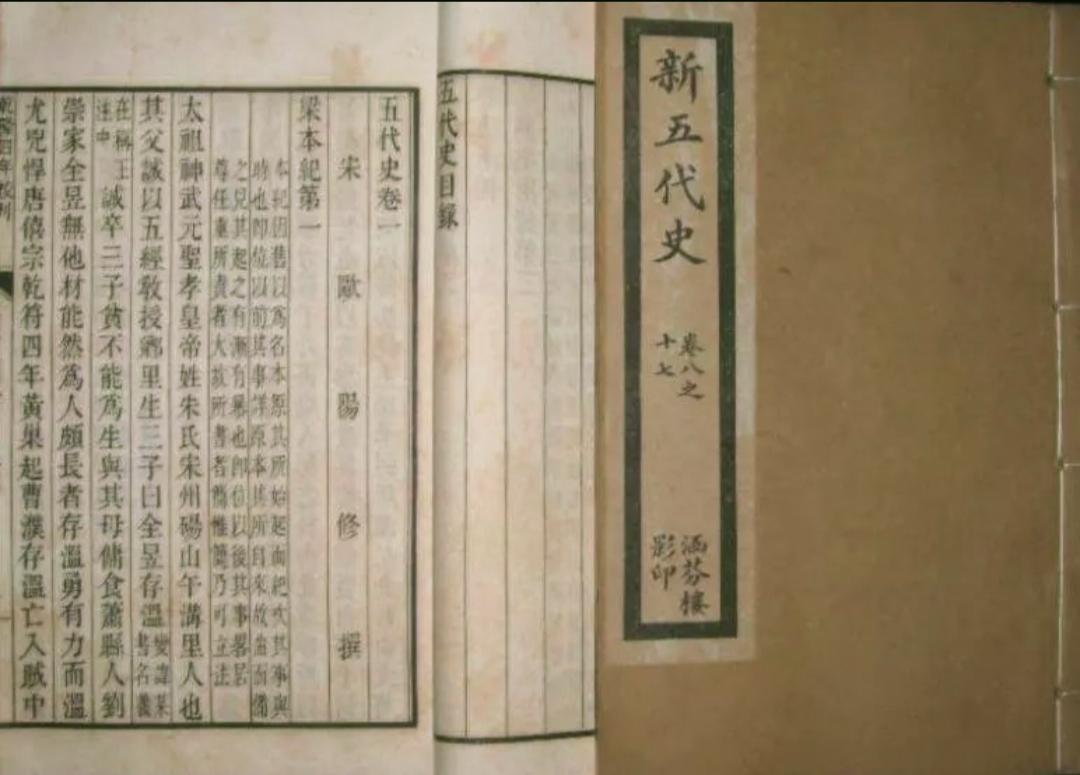 新五代史
卷八之
十七
涵芬樓
影印
五代史目錄
五代史卷一
宋 歐陽修 撰
梁本紀第一
本紀因舊以為名本原其所始起而紀次其事與
時也即位以前其事詳原本其所自來故曲而備
之見其起之有漸有暴也即位以後其事畧居
尊任重所責者大故所書者簡惟簡乃可立法
太祖神武元聖孝皇帝姓朱氏宋州碭山午溝里人也
其父誠以五經教授鄉里生三子曰全昱存溫
變諱某
書名義
在稱王
注中
誠卒三子貧不能為生與其母傭食蕭縣人劉
崇家全昱無他材能然為人頗長者存溫勇有力而溫
尤兇悍唐僖宗乾符四年黃巢起曹濮存溫亡入賊中